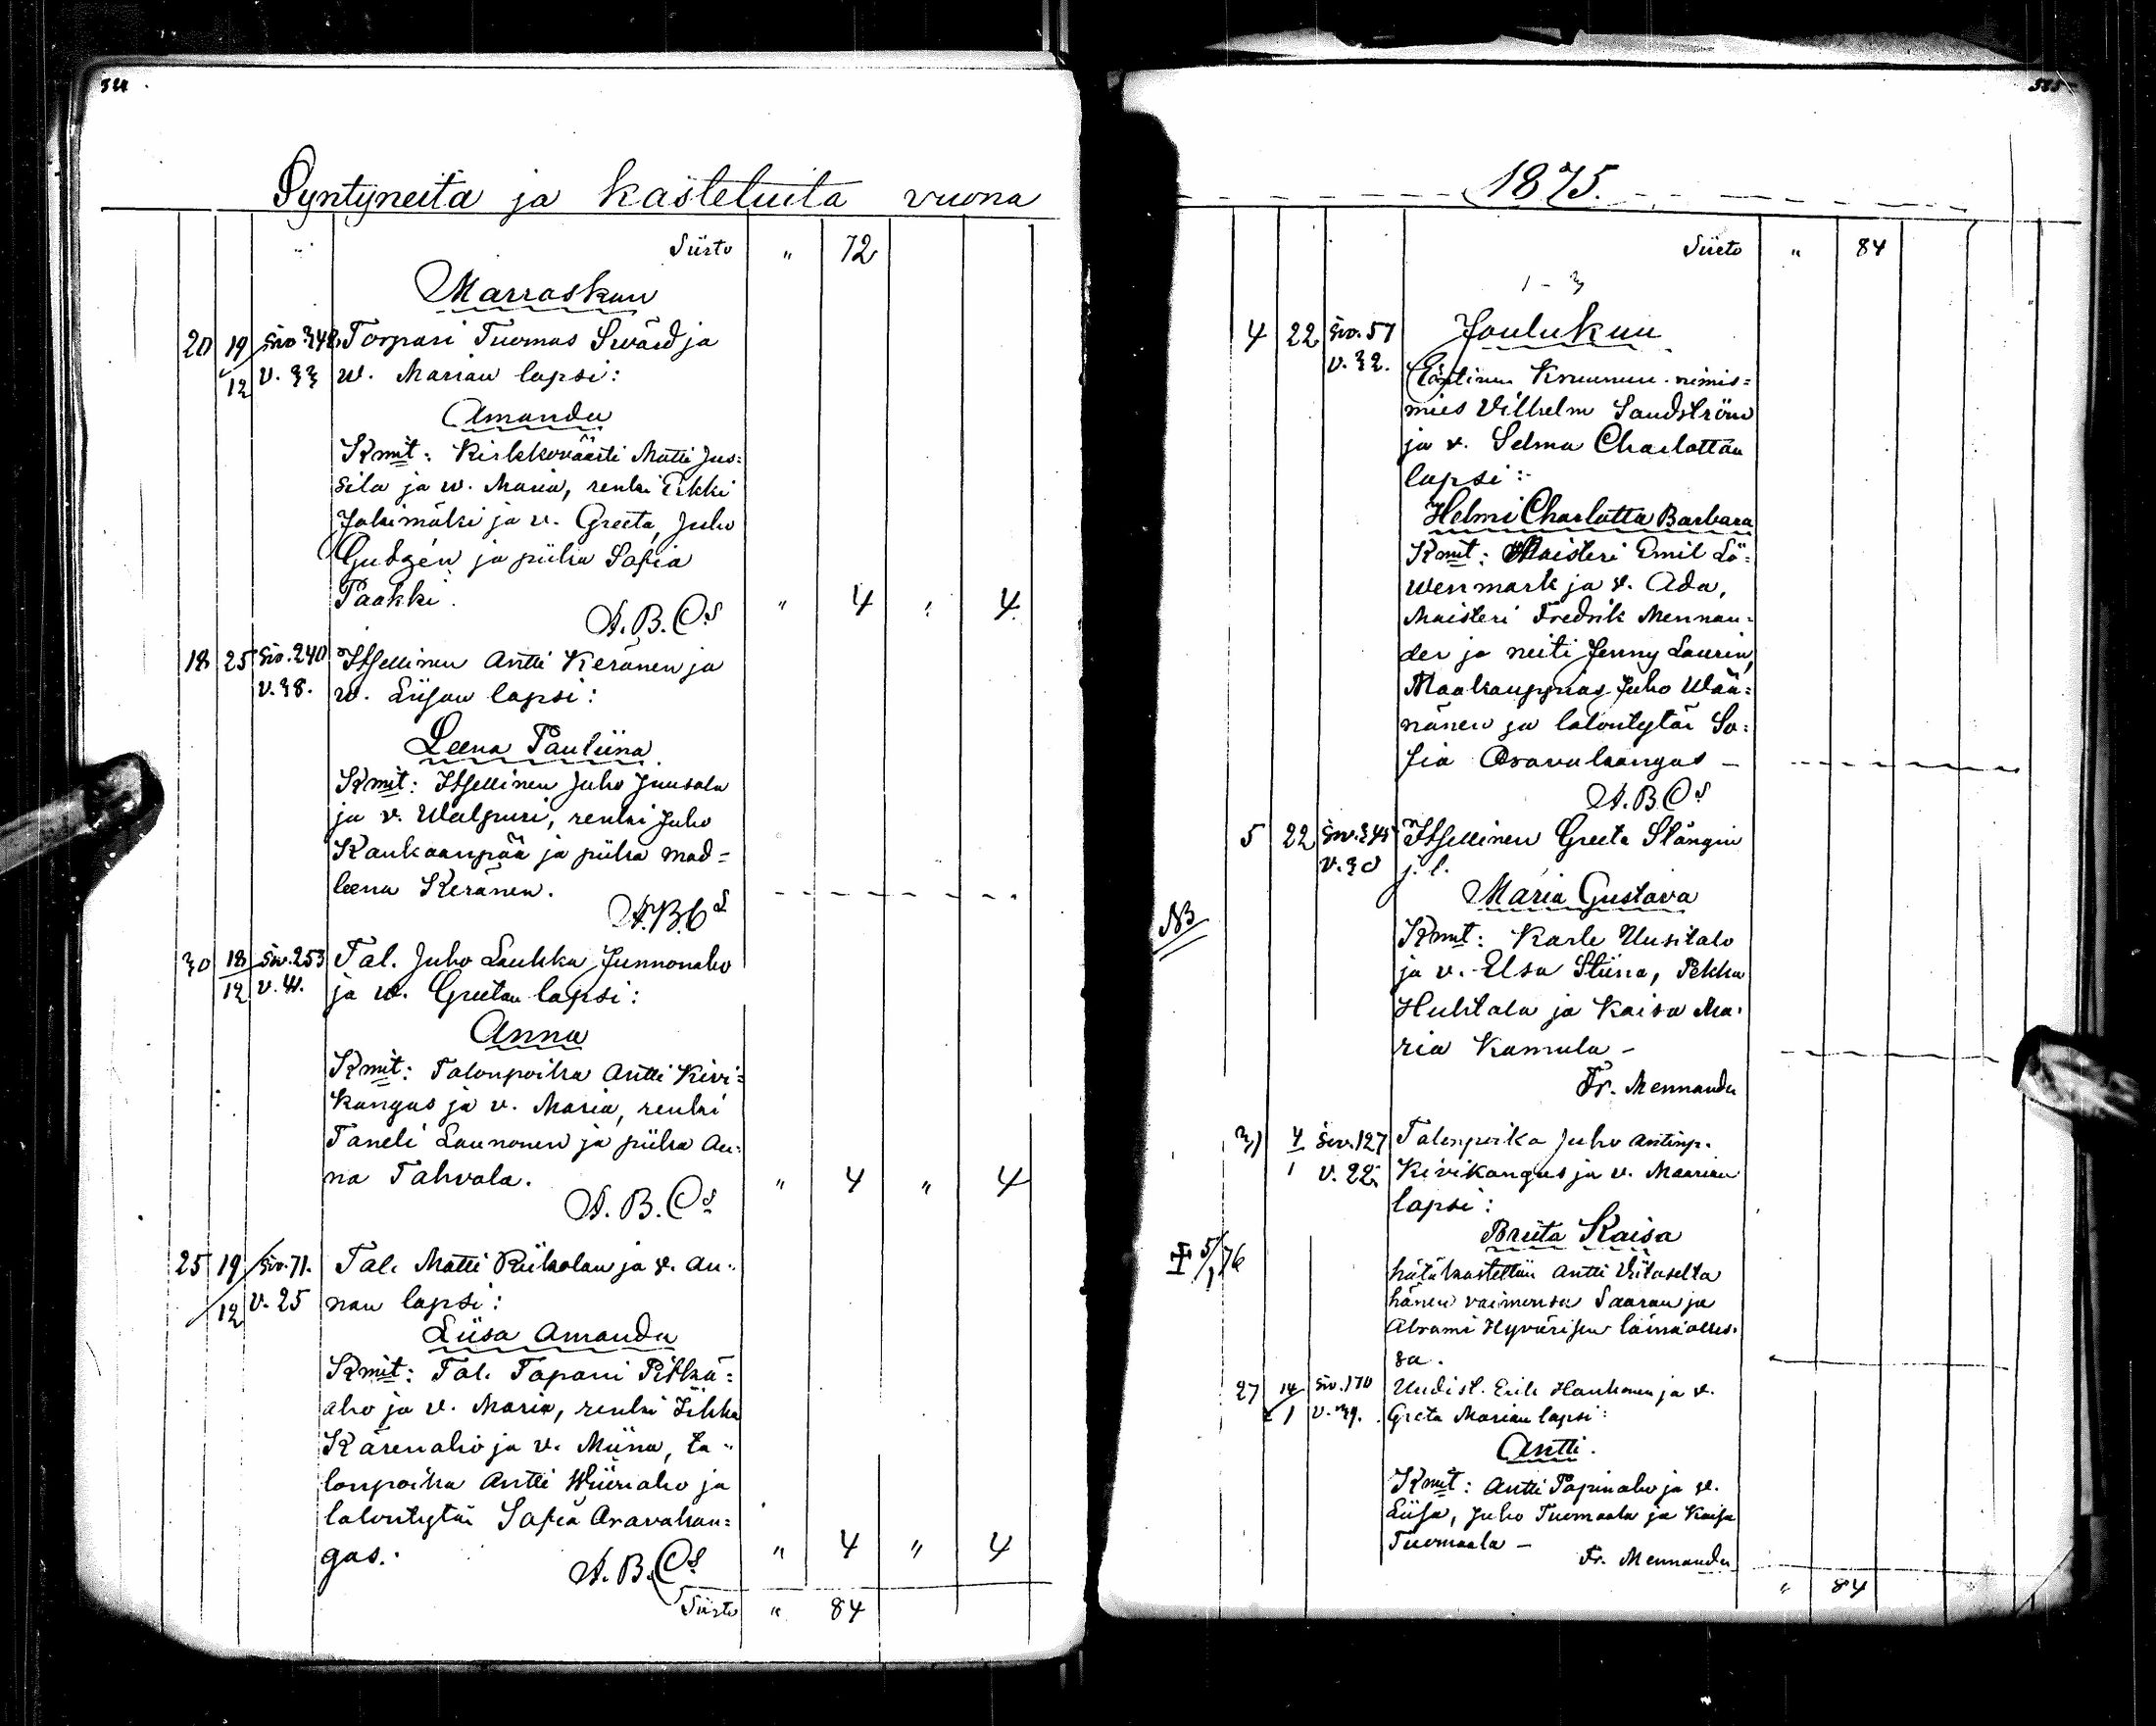 584
Syntyneitä ja kastetuita vuona
Siirto " 72
Marraskuu
20 19/12 Siv. 348. v. 33 Torpari Tuomas Swärd ja
w. Marian lapsi:
Amanda
Kmit: Kirkkoväärti Matti Jus=
sila ja w. Maria, renki Erkki
Jokimäki ja v. Greeta, Juho
Gudzén ja piika Sofia
Paakki. " 4 " 4
A. B. Cs
18 25 Siv. 240 v. 38. Itsellinen Antti Keränen ja
w. Liisan lapsi:
Leena Pauliina.
Kmit: Itsellinen Juho Juusola
ja v. Walpuri, renki Juho
Kankaanpää ja piika Mad=
leena Keränen.
A. B. Cs
30 18/12 Siv. 253 v. 41. Tal. Juho Laukka Junnonaho
ja w. Greetan lapsi:
Anna
Kmit: Talonpoika Antti Kivi=
kangas ja v. Maria, renki
Taneli Launonen ja piika An=
na Tahvola. " 4 " 4
A. B. Cs
25 19/12 Siv. 71. v. 25 Tal. Matti Riikolan ja v. An=
nan lapsi:
Liisa Amanda
Kmit: Tal. Tapani Pitkä=
aho ja v. Maria, renki
Kärenaho ja v. Miina, ta=
lonpoika Antti Wiinaho ja
talontytär Sofia Aravakan=
gas. " 4 " 4
A. B. Cs
Siirto " 84
585
1875.
Siirto " 84
1 - 3
4 22 Siv. 57 v. 32. Joulukuu
Kruunun nimis=
mies Vilhelm Sandström
ja v. Selma Charlottan
lapsi:
Helmi Charlotta Barbara
Kmit: Maisteri Emil Lö=
wenmark ja v. Ada,
Maisteri Fredrik Mennan=
der ja neiti Jenny Laurin,
Maakauppias Juho Wää=
nänen ja talontytär So=
fia Aravakangas -
A. B. Cs
5 22 Siv. 345 v. 30 Itsellinen Greeta Stångin
j. l.
Maria Gustava
NB
Kmit: Karle Uusitalo
ja v. Elsa Stiina, Pekka
Huhtala ja Kaisa Ma=
ria Kamula -
Fr. Mennander
31 4/1 Siv. 127 v. 22. Talonpoika Juho Antinp.
Kivikangas ja v. Maarian
lapsi:
Briita Kaisa
5/1 76
hätäkastettiin Antti Viitaselta
hänen vaimonsa Saaran ja
Abrami Hyvärisen läsnä olles=
sa.
27 14/1 Siv. 170 v. 39. Uudist. Erik Hankonen ja v.
Greta Marian lapsi:
Antti.
Kmit: Antti Papinaho ja v.
Liisa, Juho Tuomaala ja Kaisa
Tuomaala -
Fr. Mennander
" 84